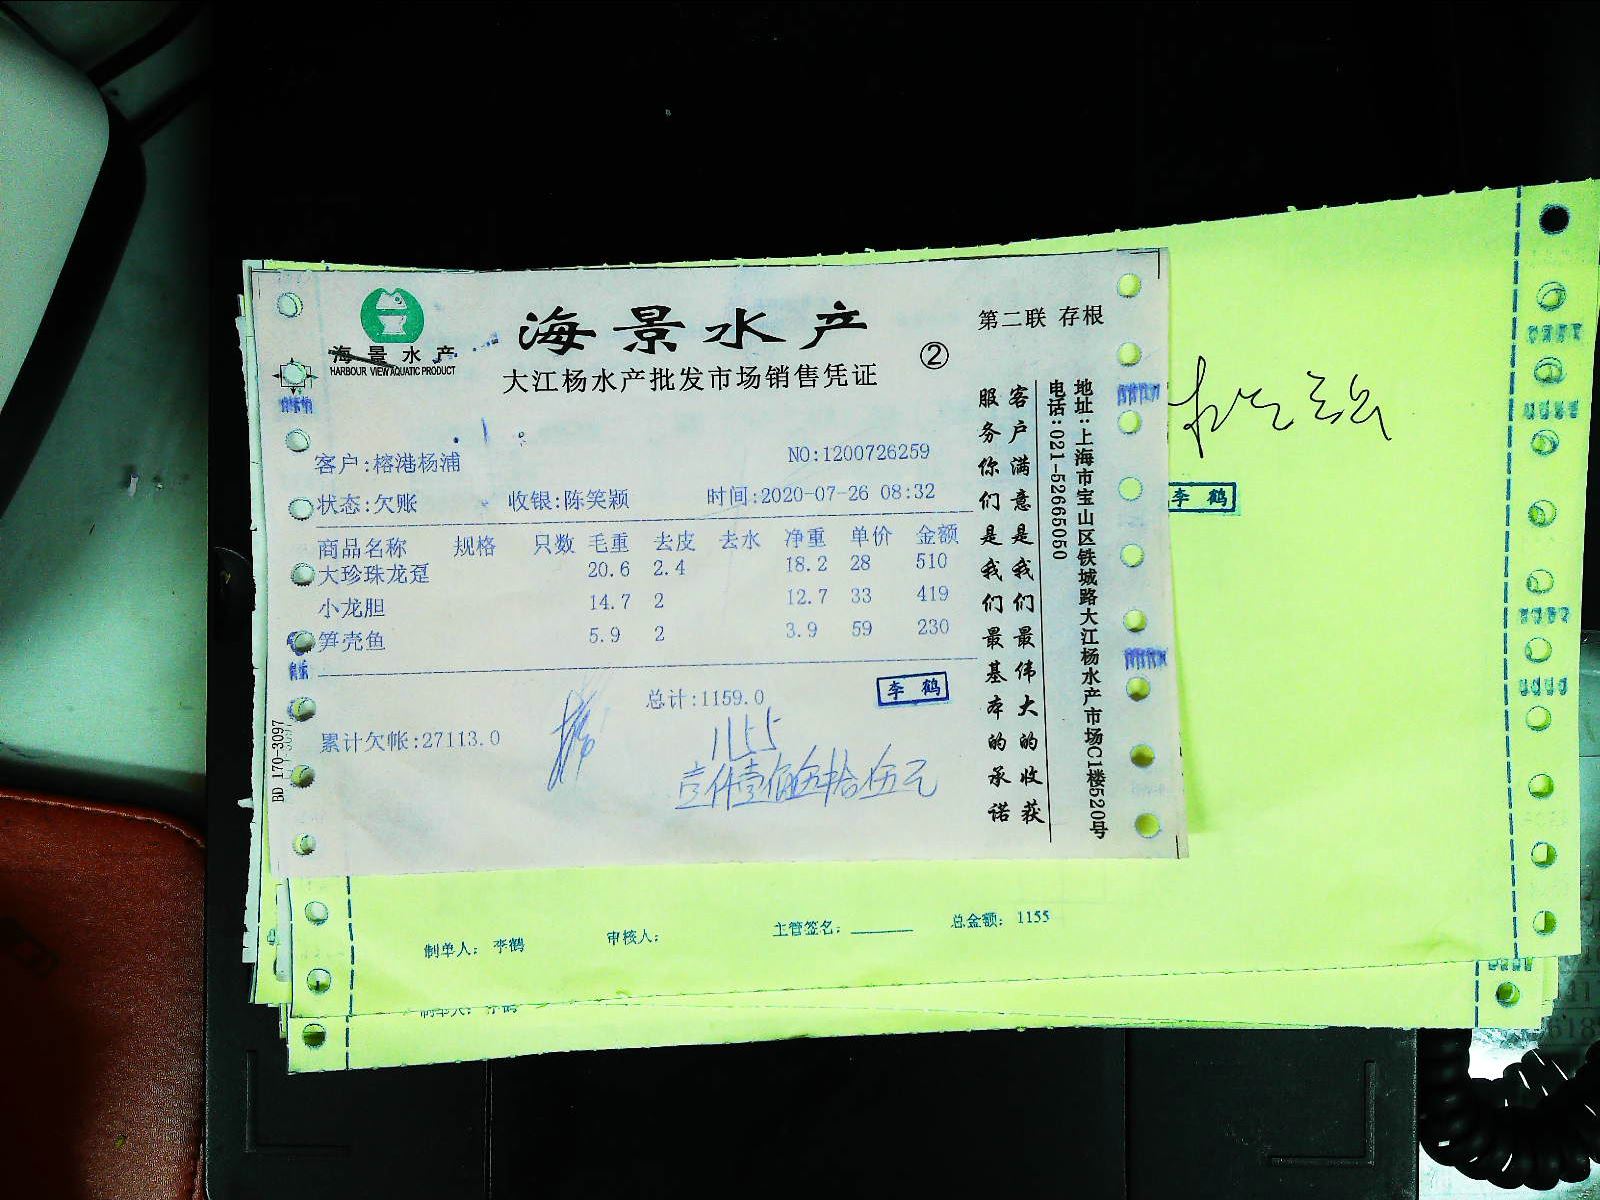 海景水产
HARBOUR VIEW AQUATIC PRODUCT
海景水产
大江杨水产批发市场销售凭证
②
第二联 存根
客户:榕港杨浦
NO:1200726259
状态:欠账 收银:陈笑颖 时间:2020-07-26 08:32
商品名称 规格 只数 毛重 去皮 去水 净重 单价 金额
大珍珠龙趸 20.6 2.4 18.2 28 510
小龙胆 14.7 2 12.7 33 419
笋壳鱼 5.9 2 3.9 59 230
总计:1159.0
李鹤
累计欠帐:27113.0
1155
壹仟壹佰伍拾伍元
客户满意是我们最伟大的收获
服务你们是我们最基本的承诺
地址:上海市宝山区铁城路大江杨水产市场C1楼520号
电话:021-52665050
BD 170-3097
李鹤
制单人: 李鹤 审核人: 主管签名: 总金额: 1155
制单人: 李鹤